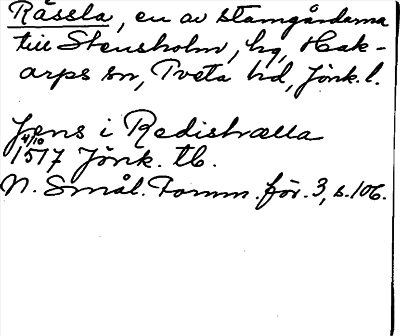 Rässla, en av stamgårdarna
till Stensholm, hg, Hak-
arps sn, Tveta hd, Jönk. l.
Jens i Redistrælla
4/10
1517 Jönk. tb.
N. Smål. Fornm. för. 3, s. 106.